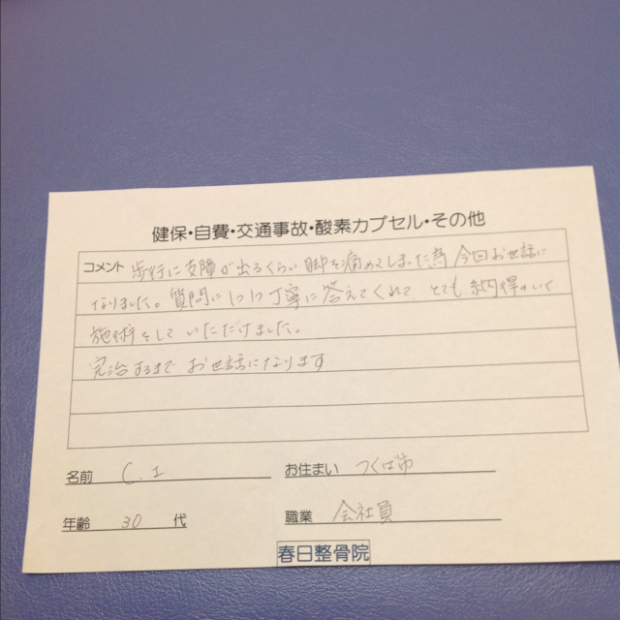 健保・自費・交通事故・酸素カプセル・その他
コメント 歩行に支障が出るくらい脚を痛めてしまった為 今回お世話に
なりました。質問に1つ1つ丁寧に答えてくれて とても納得のいく
施術をしていただけました。
完治するまで お世話になります
名前 C.I お住まい つくば市
年齢 30 代 職業 会社員
春日整骨院